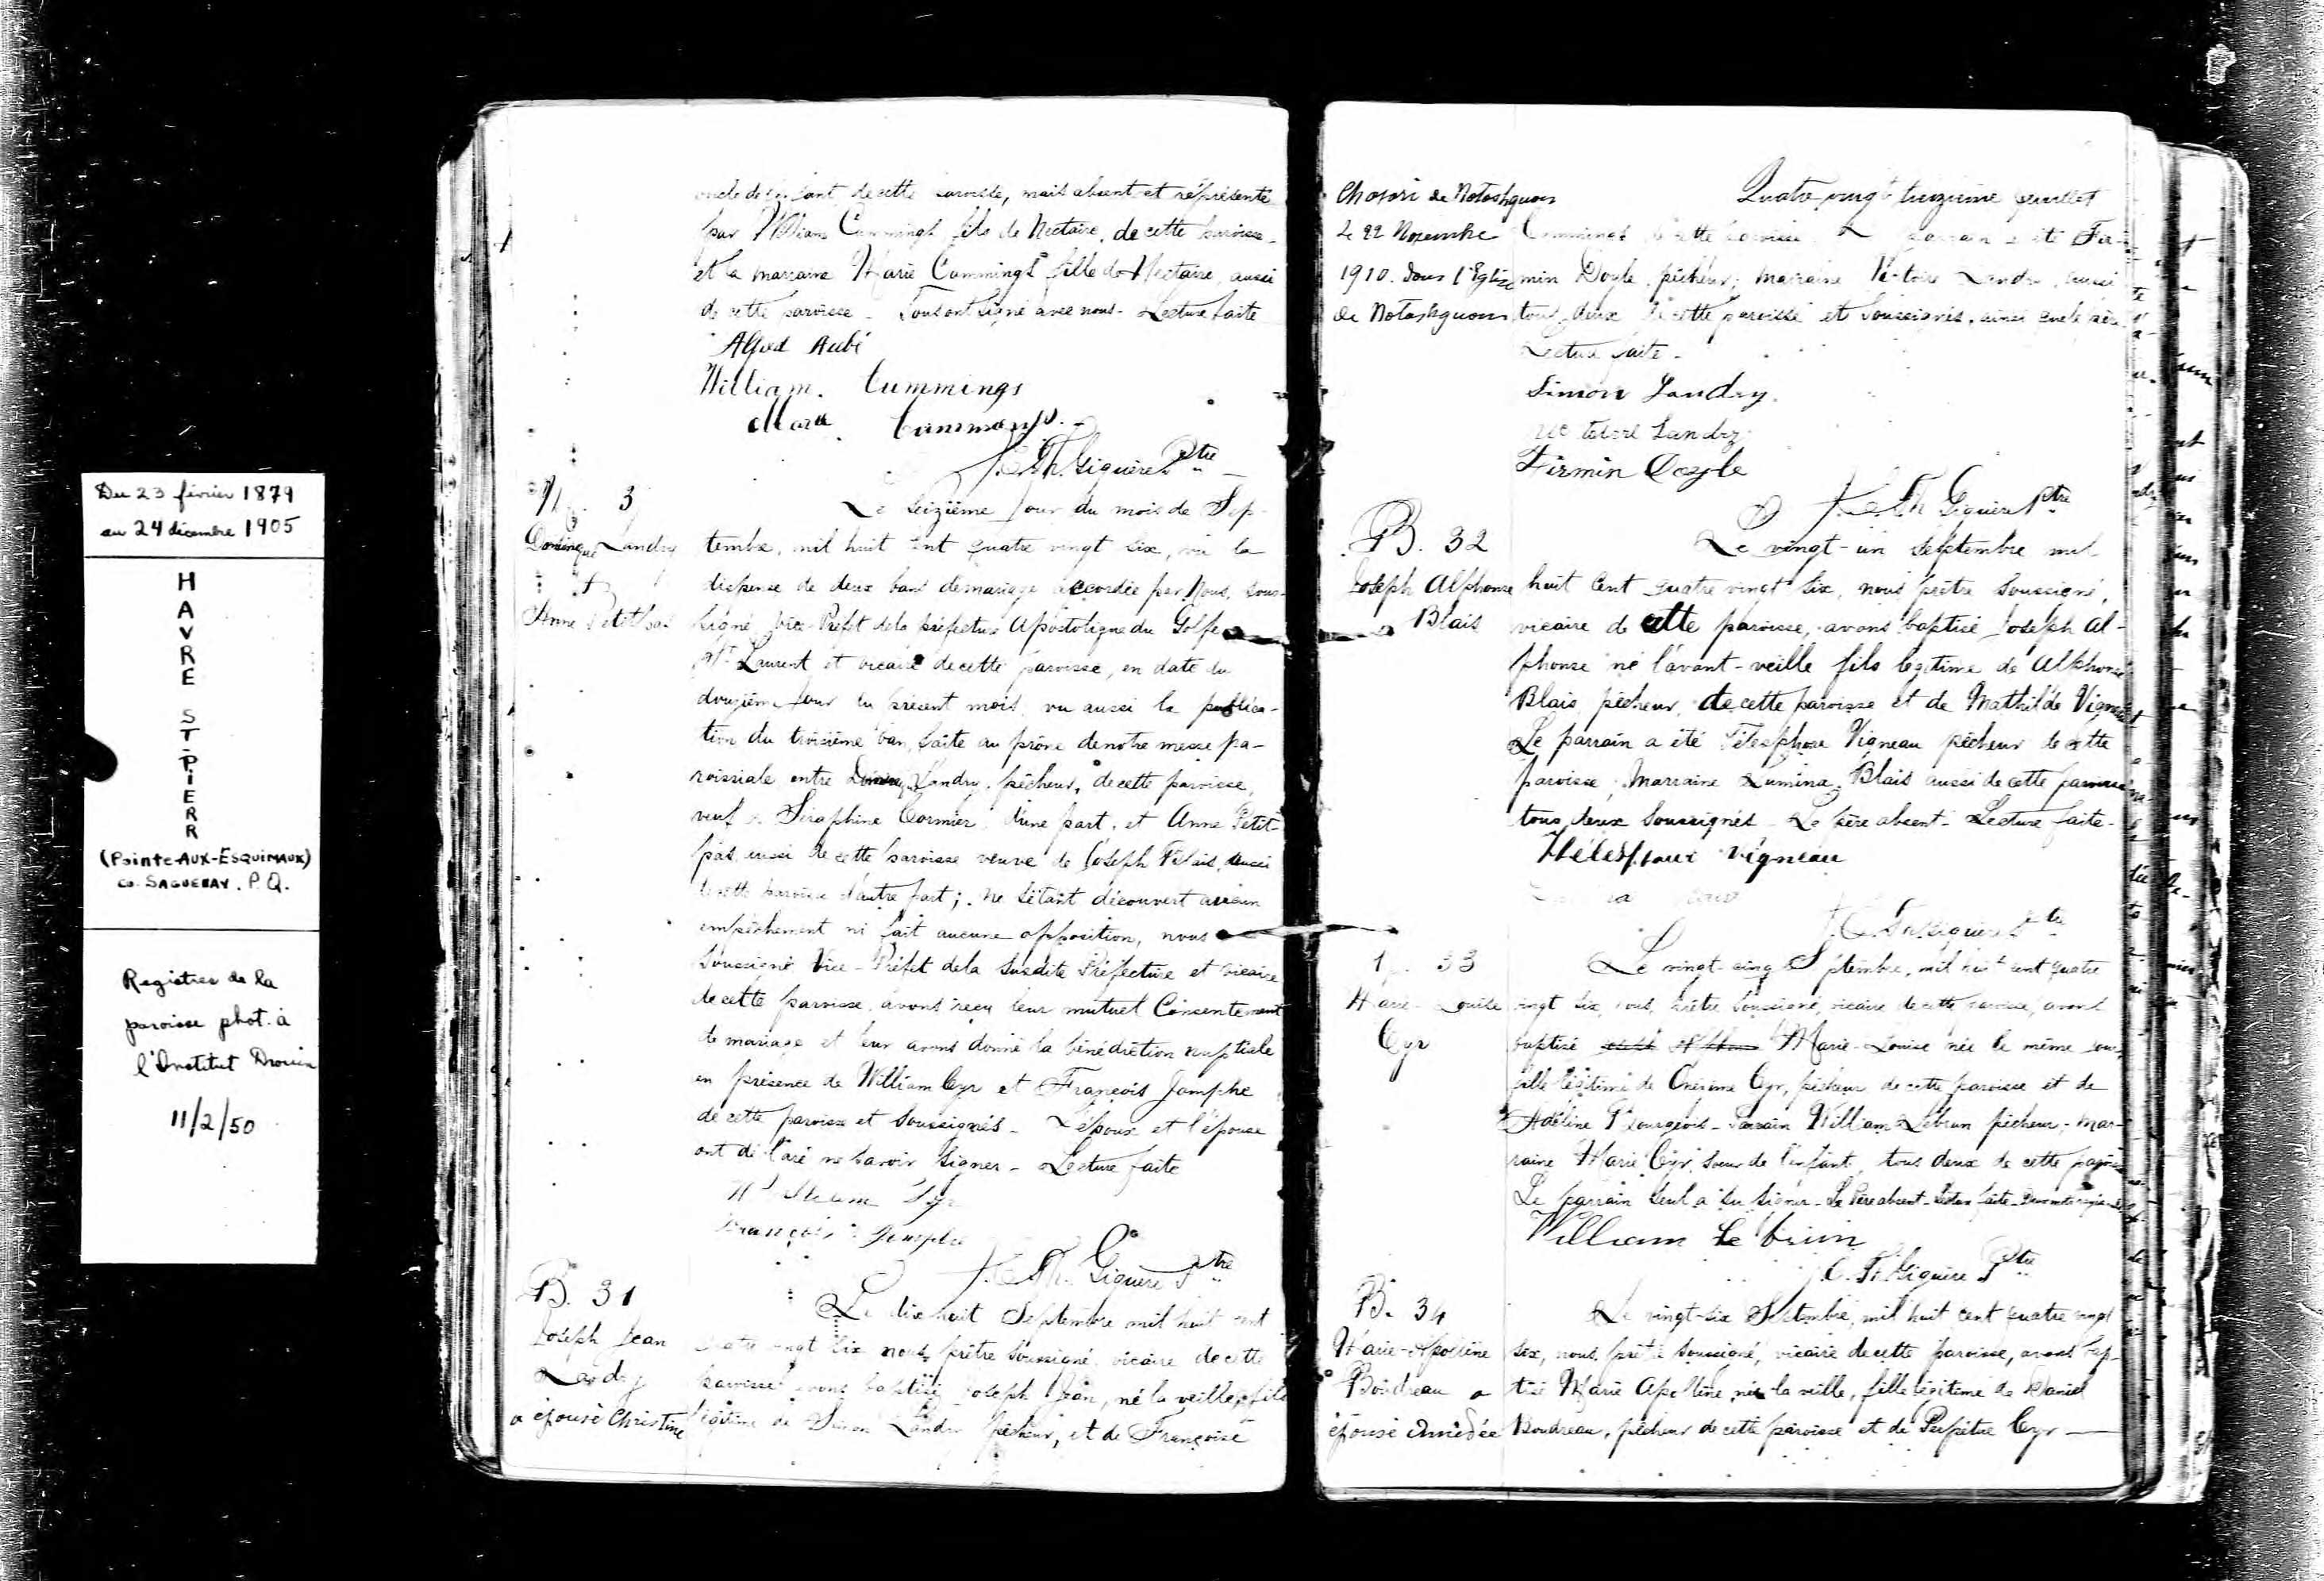 Du 23 février 1879
au 24 décembre 1905
HAVRE
ST-PIERR
(Pointe-AUX-ESQUIMAUX)
co. SAGUENAY. P.Q.
Registres de la
paroisse phot. à
l'Institut Drouin
11/2/50
de cette paroisse, mais absent et représenté
par William Cummings fils de Nectaire, de cette paroisse
et la marraine Marie Cummings fille de Nectaire, aussi
de cette paroisse - Tous ont signé avec nous - Lecture faite
Alfred Aubé
William. Cummings
Cummings.
J.C.Th. Giguère Ptre
M. 3
Dominique Landry
&
Anne Petitpas
Le seizième jour du mois de Sep-
tembre, mil huit cent quatre vingt six, vu la
dispense de deux bans de mariage accordée par Nous, sous-
signé, Vice-Préfet de la préfecture Apostolique du Golfe
St Laurent et vicaire de cette paroisse, en date du
douzième jour du présent mois, vu aussi la publica-
tion du troisième ban, faite au prône de notre messe pa-
roissiale entre Landry, pêcheur, de cette paroisse,
veuf de Séraphine Cormier, d'une part, et Anne Petit-
pas, aussi de cette paroisse veuve de Joseph Blais, aussi
de cette paroisse d'autre part; ne s'étant découvert aucun
empêchement ni fait aucune opposition, nous
soussigné, Vice-Préfet de la susdite Préfecture et vicaire
de cette paroisse, avons reçu leur mutuel Consentement
de mariage et leur avons donné la bénédiction nuptiale
en présence de William Cyr et François Jomphe
de cette paroisse et soussignés - L'époux et l'épouse
ont déclaré ne savoir signer - Lecture faite
William Cyr
François Jomphe
J.C.Th. Giguère Ptre
B. 31
Joseph Jean
Landry
a épousé Christine
Le dix huit Septembre mil huit cent
quatre vingt six nous, prêtre soussigné, vicaire de cette
paroisse avons baptisé Joseph Jean, né la veille, fils
légitime de Simon Landry pêcheur, et de Françoise
Chotori de Notashquan
le 22 Novembre
1910. dans l'Eglise
de Notashquan
Quatre vingt treizième feuillet
Cummings de cette paroisse. Le parrain a été Fir-
min Doyle, pêcheur; marraine Victoire Landry, aussi
tous deux de cette paroisse et soussignés, ainsi que le père.
Lecture faite -
Simon Landry.
Landry
Firmin Doyle
J.C.Th. Giguère Ptre
B. 32
Joseph Alphonse
Blais
Le vingt-un Septembre mil
huit cent quatre vingt six, nous prêtre soussigné,
vicaire de cette paroisse, avons baptisé Joseph Al-
phonse né l'avant-veille fils légitime de Alphonse
Blais, pêcheur, de cette paroisse et de Mathilde Vigneau
Le parrain a été Télesphore Vigneau pêcheur de cette
paroisse; Marraine Lumina Blais aussi de cette paroisse
tous deux soussignés - Le père absent - Lecture faite -
Vigneau
J.C.Th. Giguère Ptre
33
Marie-Louise
Cyr
Le vingt-cinq Septembre, mil huit cent quatre
vingt six, nous, prêtre soussigné, vicaire de cette paroisse, avons
baptisé Marie-Louise née le même jour,
fille légitime de Onésime Cyr, pêcheur de cette paroisse et de
Adéline Bourgeois - Parrain William Lebrun pêcheur, - mar-
raine Marie Cyr, soeur de l'enfant, tous deux de cette paroisse
Le parrain seul a su signer - Le Père absent - Lecture faite -
William Le brun
J.C.Th. Giguère Ptre
B. 34
Marie-Apolline
Boudreau a
épousé Amédée
Le vingt-six Septembre, mil huit cent quatre vingt
six, nous, prêtre soussigné, vicaire de cette paroisse, avons bap-
tisé Marie Apolline, née la veille, fille légitime de Daniel
Boudreau, pêcheur de cette paroisse et de Perpétue Cyr -